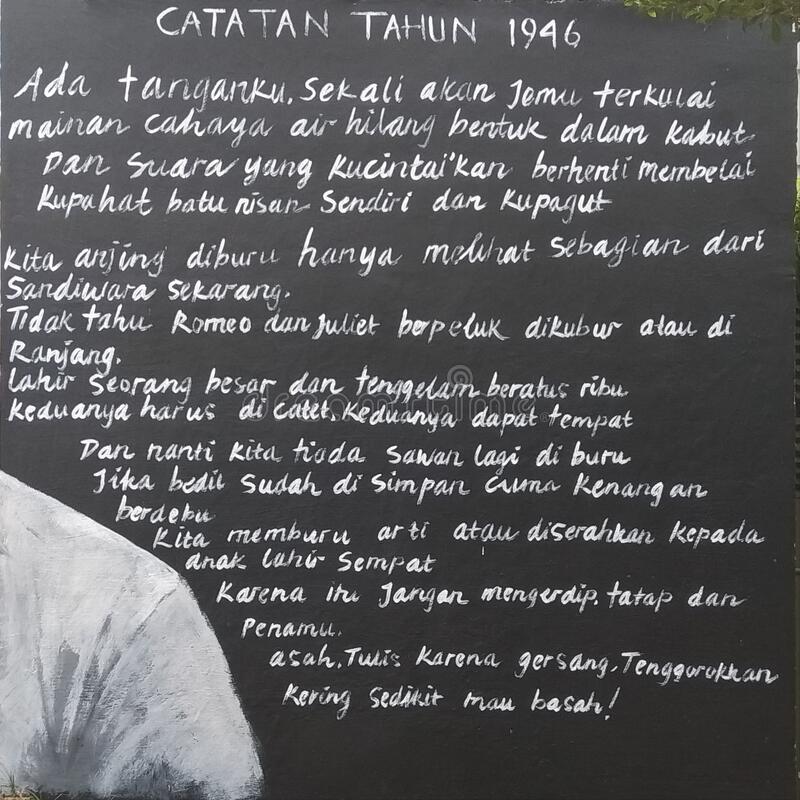 CATATAN TAHUN 1946
Ada tanganku, Sekali akan Jemu terkulai
mainan cahaya air hilang bentuk dalam kabut
Dan Suara yang kucintai'kan berhenti membelai
Kupahat batu nisan Sendiri dan Kupagut
Kita anjing diburu hanya melihat sebagian dari
Sandiwara sekarang.
Tidak tahu Romeo dan Juliet berpeluk dikubur atau di
Ranjang.
lahir Seorang besar dan tenggelam beratus ribu
keduanya harus di catet, keduanya dapat tempat
Dan nanti kita tiada sawan lagi di buru
Jika bedil sudah di Simpan cuma kenangan
berdebu
Kita memburu arti atau diserahkan kepada
anak lahir sempat
Karena itu Jangan mengerdip, tatap dan
Penamu,
asah, Tulis Karena gersang, Tenggorokkan
Kering sedikit mau basah!
dreamstime